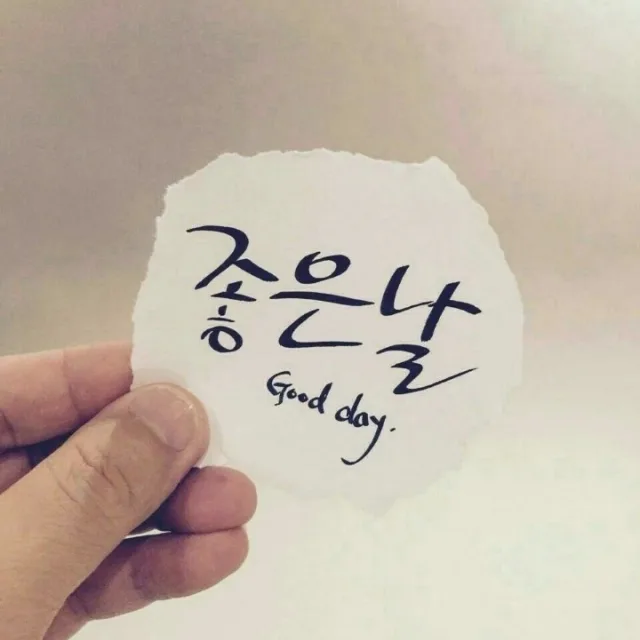 좋은날
Good day.